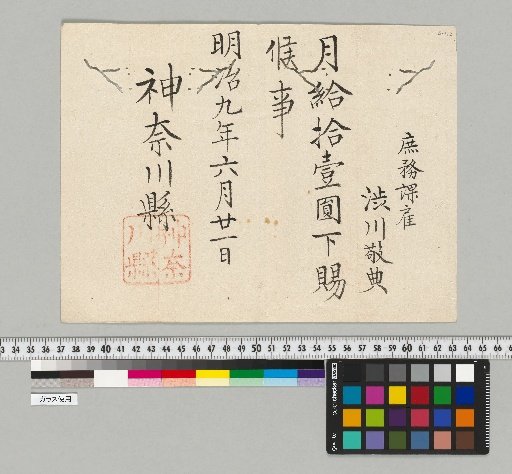 庶務課雇
渋川敬典
月給拾壹圓下賜
候事
明治九年六月廿一日
神奈川縣
神奈
川縣
33 34 35 36 37 38 39 40 41 42 43 44 45 46 47 48 49 50 51 52 53 54 55 56 57 58 59 60 61 62 63 64 65 66
ガラス使用